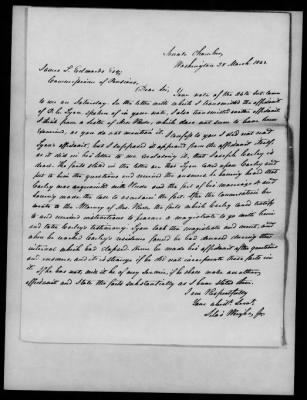 Senate Chamber,
Washington 28 March 1842
James L. Edwards Esq;
Commissioner of Pensions,
Dear Sir, Your note of the date but came
to me on Saturday. In the letter with which I transmitted the affidavit
of D. C. Lyon spoken of in your note, I also transmitted another affidavit
I think from a sister of Mrs. which does not seem to have been
examined, as you do not mention it. I confess to you I did not read
Lyons' affidavit, but I supposed it appeared from the affidavit itself,
as it did in his letter to me enclosing it, that Carley is
dead. The facts stated in the letter are that Lyon called upon Carley and
put to him the questions and received the answers, he having heard that
Carley was acquainted with and the fact of his marriage &
having made the call to ascertain the fact. After the conversation he
wrote to the Attorney of Mrs. the facts which Carley could testify
to and received instructions to procure a magistrate to go with him
and take Carley's testimony. Lyon took the magistrate and went and
when he reached Carley's residence found he had deceased during the
interval which had elapsed since he made his affidavit after questions
and answers, and it is strange if he did not incorporate these facts in
it. If he has not, will it be of any service, if he shall make another
affidavit and state the facts substantially as I have stated them.
I am Respectfully
Your obedt. Servt.
Silas Wright, Jr.